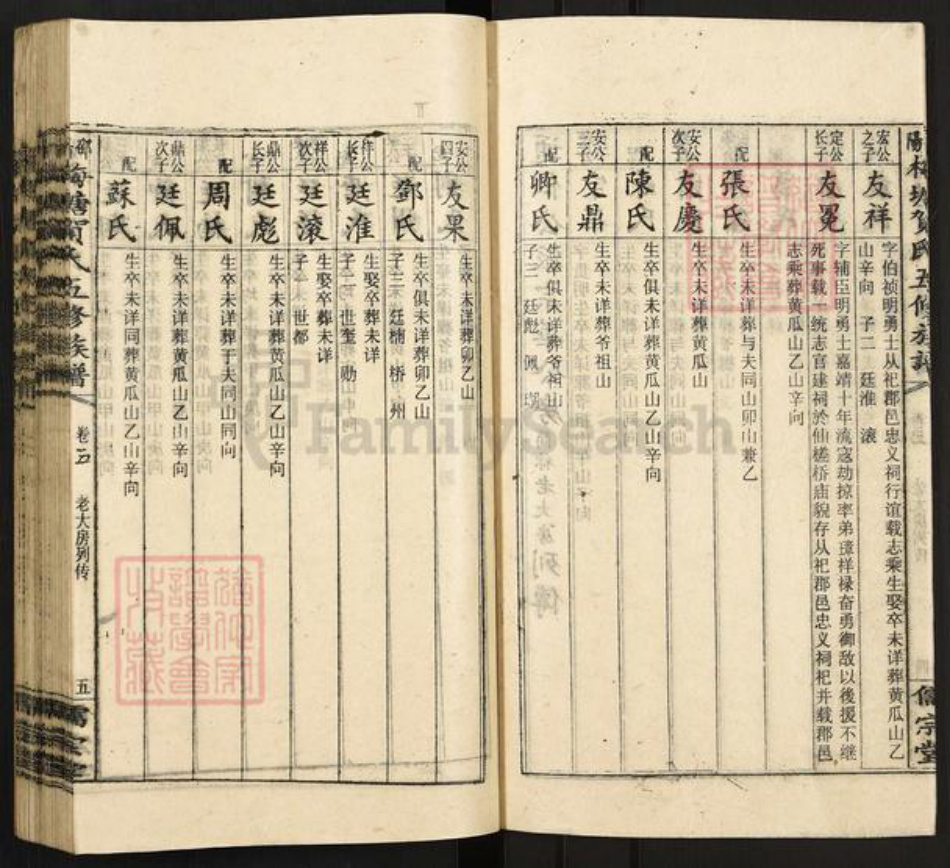 宏公之子
友祥
字伯祯明勇士从祀郡邑忠义祠行谊载志乘生娶卒未详葬黄瓜山乙
山辛向 子二 廷淮 滚
定公长子
友冕
字辅臣明勇士嘉靖十年流寇劫掠率弟璋祥禄奋勇御敌以後援不继
死事载一统志官建祠於仙槎桥庙貌存从祀郡邑忠义祠祀并载郡邑
志乘葬黄瓜山乙山辛向
配
張氏
生卒未详葬与夫同山卯山兼乙
安公次子
友慶
生卒未详葬黄瓜山
配
陳氏
生卒俱未详葬黄瓜山乙山辛向
安公三子
友鼎
生卒未详葬爷祖山
配
卿氏
生卒俱未详葬爷祖山
子三 廷彪 佩
儒宗堂
安公四子
友果
生卒未详葬卯乙山
配
鄧氏
生卒俱未详葬卯乙山
子三 廷楠 桥 州
祥公长子
廷淮
生娶卒葬未详
子二 世奎 勋
祥公次子
廷滚
生娶卒葬未详
子一 世都
鼎公长子
廷彪
生卒未详葬黄瓜山乙山辛向
配
周氏
生卒未详葬于夫同山同向
鼎公次子
廷佩
生卒未详葬黄瓜山乙山辛向
配
蘇氏
生卒未详同葬黄瓜山乙山辛向
賀氏五修族譜
卷二
老大房列传
五
儒宗堂
FamilySearch